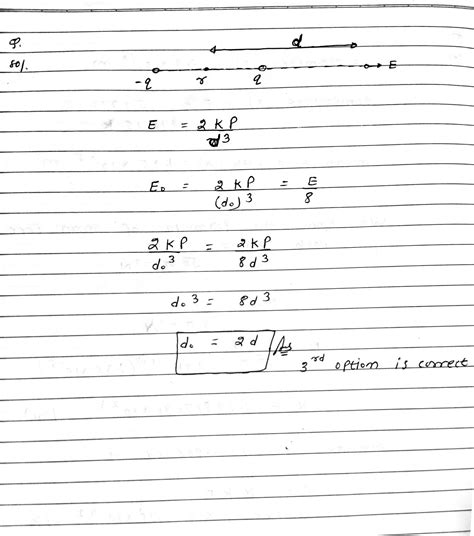 Q.
d
sol.
E
-q r q
E = 2KP / d³
E₀ = 2KP / (d₀)³ = E / 8
2KP / d₀³ = 2KP / 8d³
d₀³ = 8d³
d₀ = 2d Ans
3rd option is correct